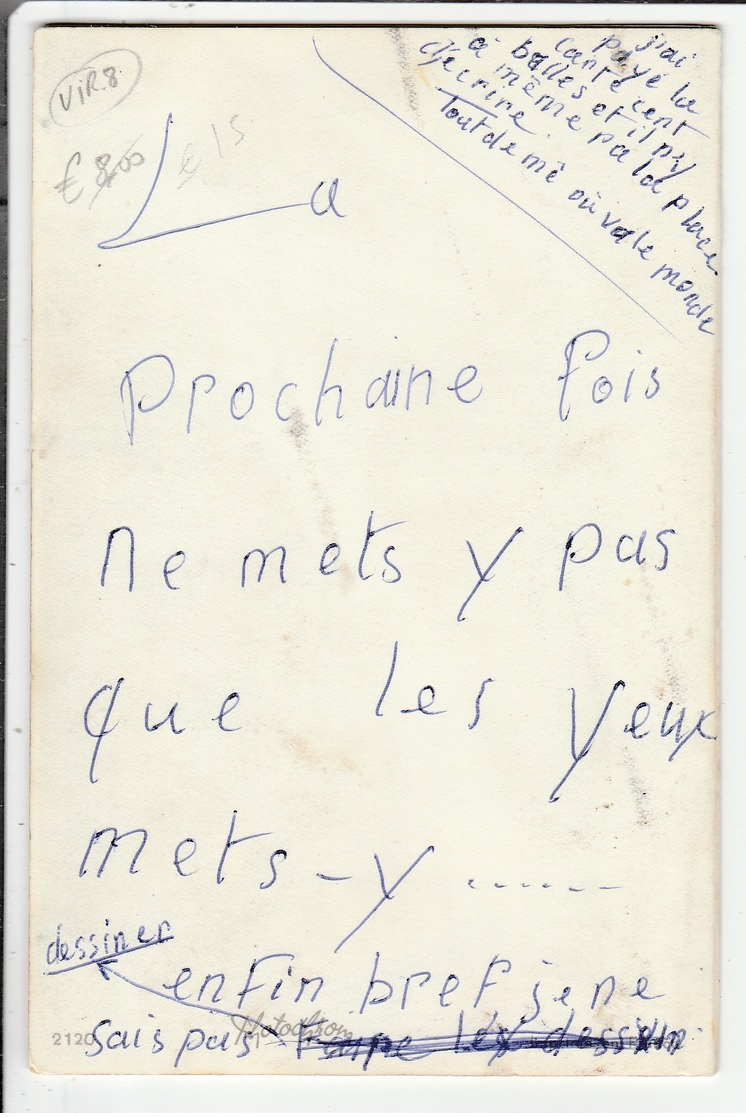 VIR.8
€ 8,00 € 15
j'ai
payé la
carte cent
à balles et il n'y
a même pa la place
d'écrire.
Tout de mê où va le monde
La
Prochaine fois
ne mets y pas
que les yeux
mets-y ......
dessiner
enfin bref je ne
sais pas faire les dessin
2120
Photochrom